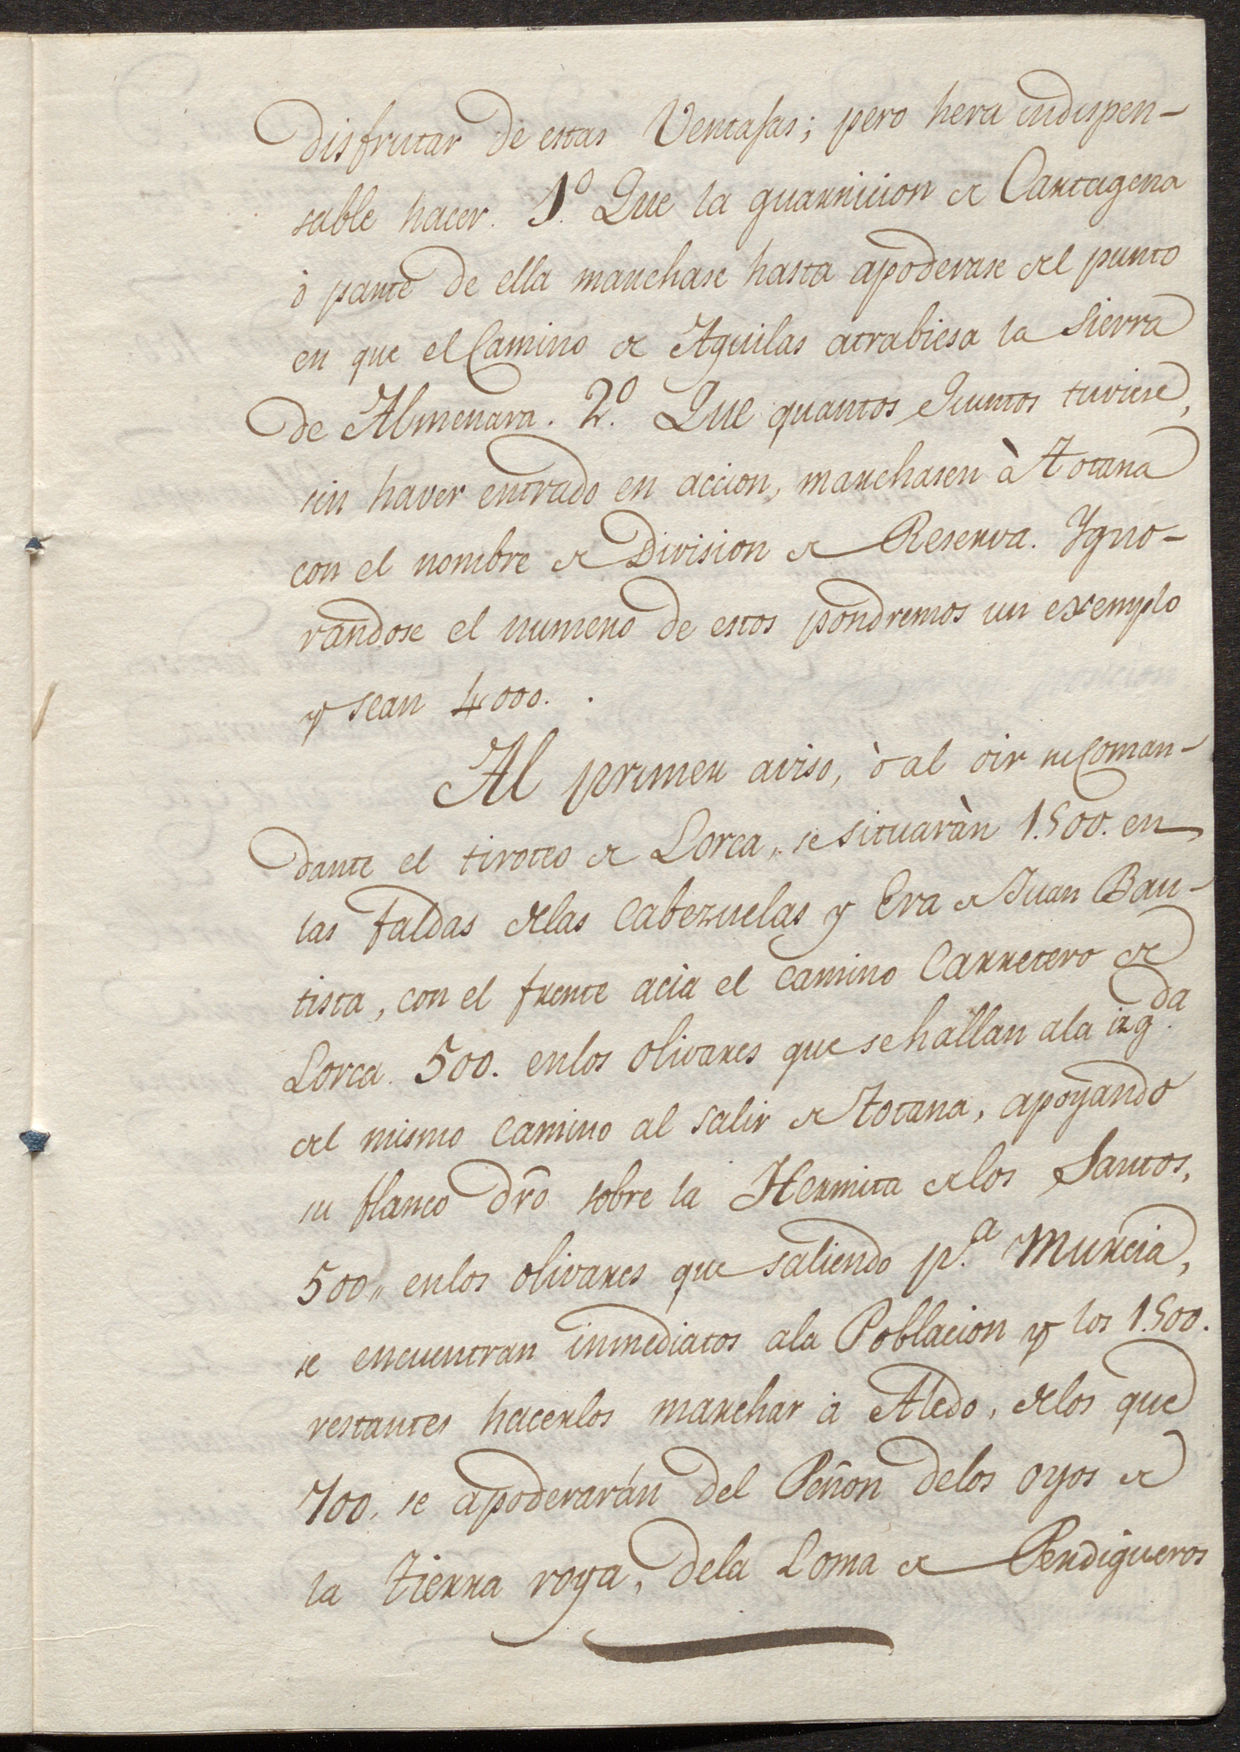 disfrutar de estas Ventajas; pero hera indispen-
sable hacer. 1º. Que la guarnicion de Cartagena
ò parte de ella marchase hasta apoderarse del punto
en que el Camino de Aguilas atrabiesa la Sierra
de Almenara. 2º. Que quantos Juntos tuviese,
sin haver entrado en accion, marchasen à Totana
con el nombre de Division de Reserva. Ygno-
randose el numero de estos pondremos un exemplo
y sean 4000.
Al primer aviso, ò al oir su Coman-
dante el tiroteo de Lorca, se situaràn 1.500. en
las faldas delas Cabezuelas y Era de Juan Bau-
tista, con el frente acia el Camino Carretero de
Lorca. 500. enlos olivares que se hallan ala izqda.
del mismo Camino al salir de Totana, apoyando
su flanco dro̅ sobre la Hermita delos Santos,
500,, enlos olivares que saliendo p.ª Murcia,
se encuentran inmediatos ala Poblacion y los 1.500.
restantes hacerlos marchar à Aledo, delos que
700. se apoderarán del Peñon delos oyos de
la tierra roya, dela Loma de Perdigueros